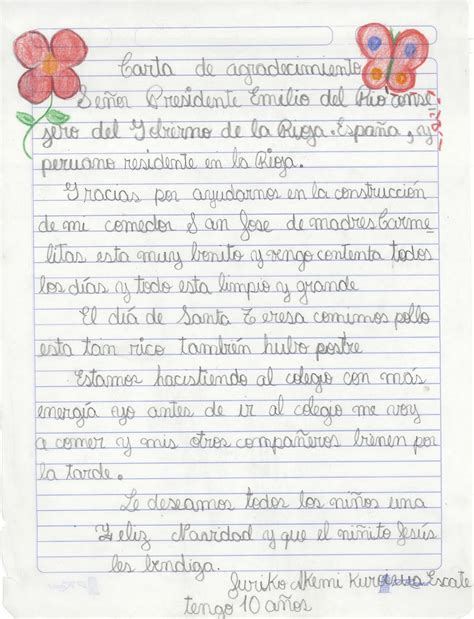 Carta de agradecimiento
Señor Presidente Emilio del Rio conse
jero del Gobierno de la Rioja. España, y
peruano residente en la Rioja.
Gracias por ayudarnos en la construcción
de mi comedor San Jose de madres Carme-
litas esta muy bonito y vengo contenta todos
los días y todo esta limpio y grande
El día de Santa Teresa comimos pollo
esta tan rico también hubo postre
Estamos hacistiendo al colegio con más
energía yo antes de ir al colegio me voy
a comer y mis otros compañeros bienen por
la tarde.
Le deseamos todos los niños una
Feliz Navidad y que el niñito Jesús
les bendiga.
Juriko Akemi Escate
tengo 10 años